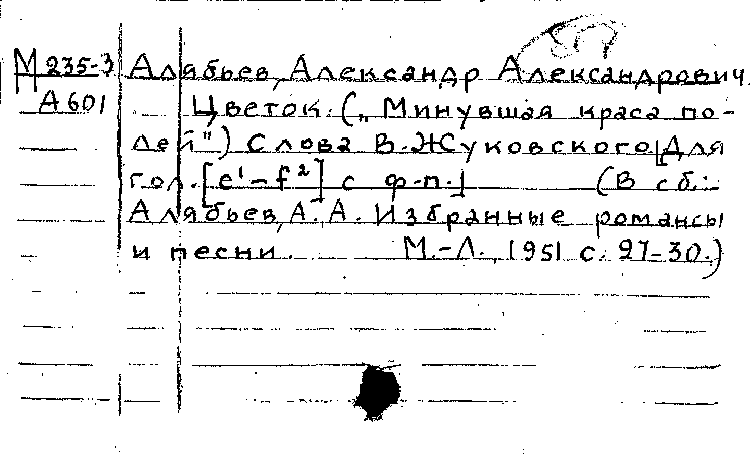 М 235-3 Алябьев, Александр Александрович.
А 601 Цветок. („Минувшая краса по-
лей") Слова В. Жуковского [Для
гол. [e¹–f²] с ф-п.] (В сб.:
Алябьев, А. А. Избранные романсы
и песни. М.-Л., 1951 с. 27-30.)